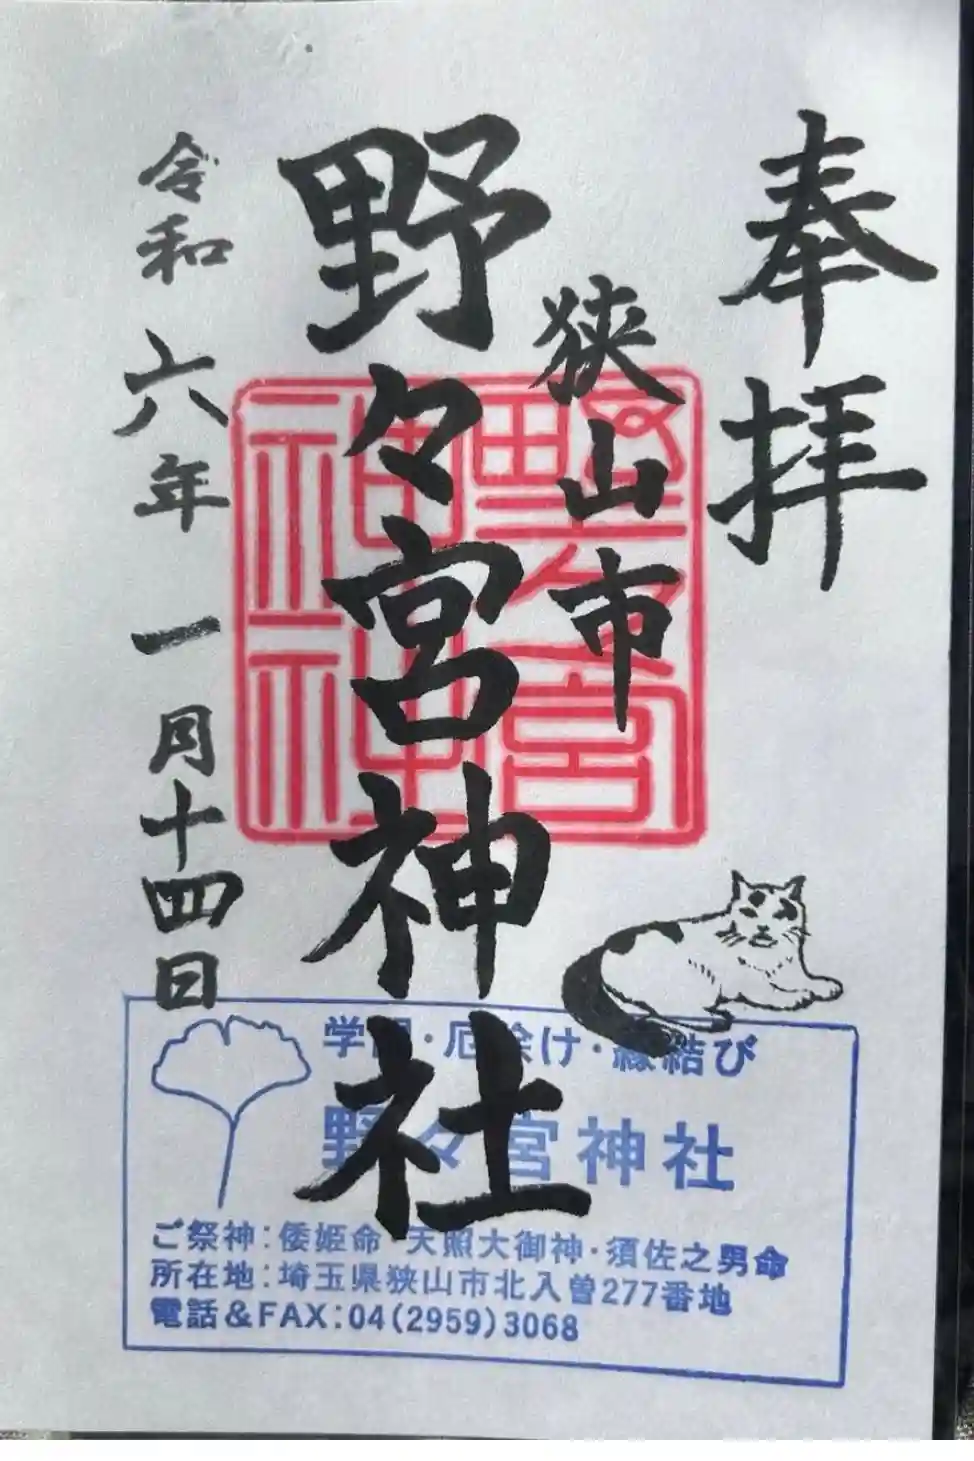 奉拝
狭山市
野々宮神社
令和六年一月十四日
学問・厄除け・縁結び
野々宮神社
ご祭神：倭姫命・天照大御神・須佐之男命
所在地：埼玉県狭山市北入曽277番地
電話＆FAX：04(2959)3068